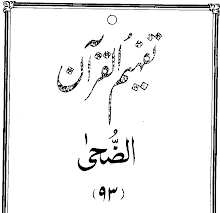 تفہیم القرآن
الضُّحیٰ
(۹۳)